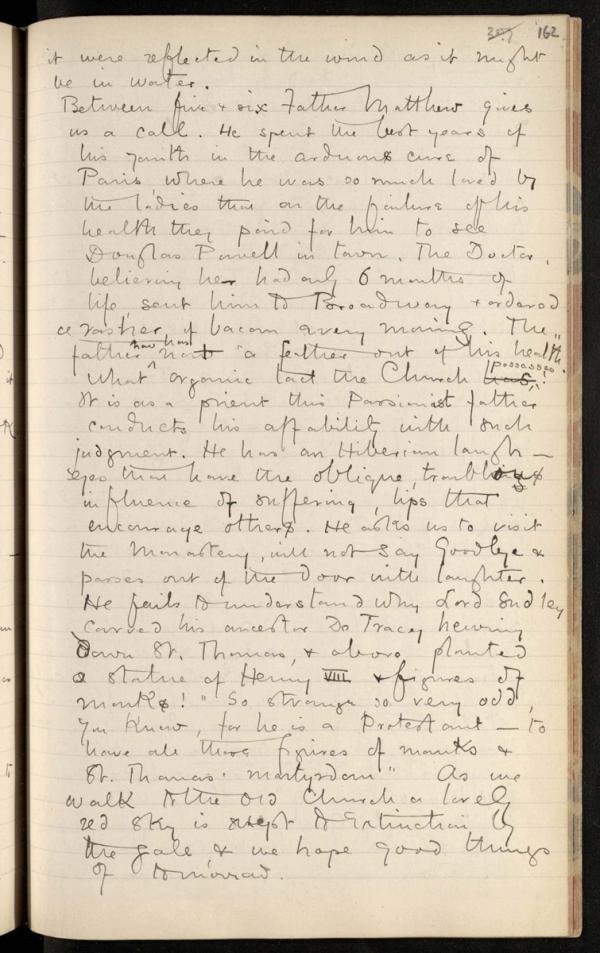 307 162
it were reflected in the wind as it might
be in water.
Between five & six Father Matthew gives
us a call. He spent the best years of
his youth in the arduous cure of
Paris, where he was so much loved by
the ladies that on the failure of his
health they paid for him to see
Douglas Powell in town. The Doctor,
believing he had only 6 months of
life, sent him to Broadway & ordered
a rasher of bacon every morning. The
father now has not a feather out of his health.
What organic tact the Church has possesses!
It is as a priest this Passionist father
conducts his affability with such
judgment. He has an Hibernian laugh —
eyes that have the oblique, troublous
influence of suffering, lips that
encourage others. He asks us to visit
the Monastery, will not say Goodbye &
passes out of the door with laughter.
He fails to understand why Lord Sudley
carved his ancestor De Tracy hewing
down St. Thomas, & above planted
a statue of Henry VIII & figures of
monks! "So strange so very odd,
you know, for he is a Protestant — to
have all those figures of monks &
St. Thomas' martyrdom" As we
walk to the Old Church a lovely
red sky is swept to extinction by
the gale & we hope good things
of tomorrow.